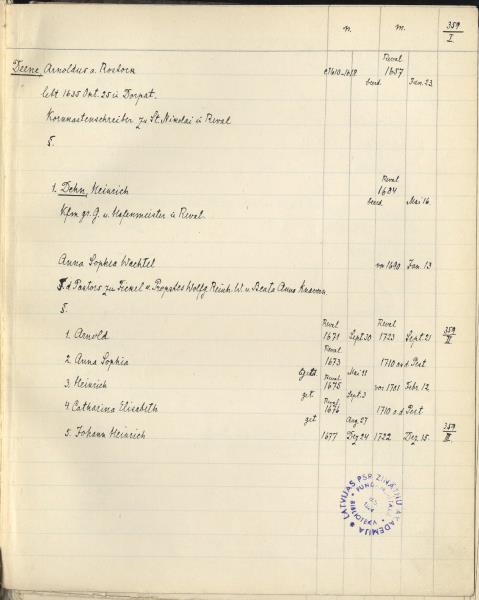 n. m. 359 I
Deene, Arnoldus a. Rostock c1610-1618 Reval 1657 beerd. Jan. 23.
lebt 1635 Okt. 25 in Dorpat.
Kornkastenschreiber zu St. Nikolai in Reval
S.
1. Dehn, Heinrich Reval 1684 beerd. Mai 16.
Kfm gr. G. u. Hafenmeister in Reval.
Anna Sophia Wachtel vor 1690 Jan. 13
T. d. Pastors zu Fickel u. Propstes Wolfg. Reinh. W. u. Beata Anna
S.
1. Arnold Reval 1671 Sept. 30 Reval 1723 Sept. 21 359 II
2. Anna Sophia Reval 1673 get. Mai 1710 a. d. Pest
3. Heinrich Reval 1675 get. Sept. 3 vor 1701 Febr. 12
4. Catharina Elisabeth Reval 1676 get. Aug. 27 1710 a. d. Pest
5. Johann Heinrich 1677 Dez. 24 1722 Dez. 15. 359 III
LATVIJAS PSR ZINĀTŅU AKADĒMIJA
FUNDAMENTĀLĀ